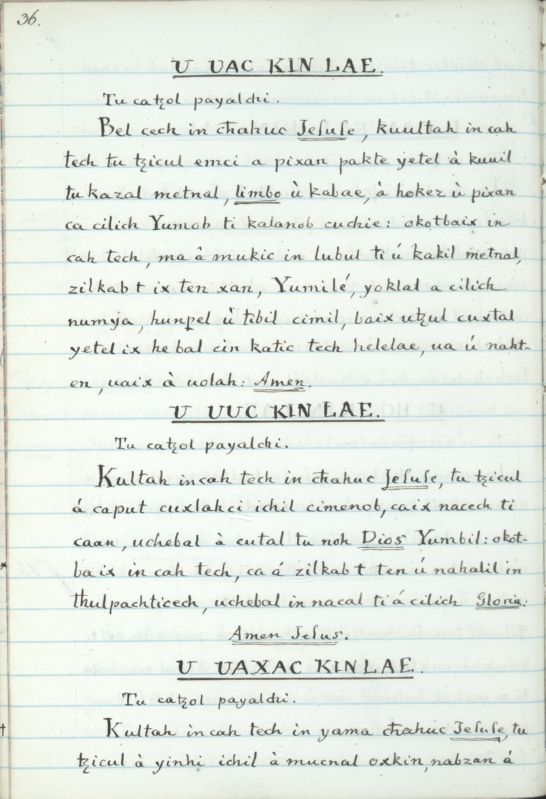 36.
U UAC KIN LAE.
Tu caꜩol payalchi.
Bel cech in cħahuc Jesuse, kuultah in cah
tech tu ꜩicul emci a pixan pakte yetel à kuuil
tu kazal metnal, limbo ù kabae, à hokez ù pixan
ca cilich Yumob ti kalanob cuchie: okotbaix in
cah tech, ma à mukic in lubul ti ú kakil metnal,
zilkabt ix ten xan, Yumilé, yoklal a cilich
numya, hunpel ù tibil cimil, baix uꜩul cuxtal
yetel ix he bal cin katic tech helelae, ua ú nakt-
en, uaix à uolah: Amen.
U UUC KIN LAE.
Tu caꜩol payalchi.
Kultah incah tech in cħahuc Jesuse, tu ꜩicul
á caput cuxlahci ichil cimenob, caix nacech ti
caan, uchebal à cutal tu noh Dios Yumbil: okot-
* baix in cah tech, ca á zilkabt ten ú nahalil in
thulpachticech, uchebal in nacal ti á cilich Gloria.
Amen Jesus.
U UAXAC KIN LAE.
Tu caꜩol payalchi.
† Kultah in cah tech in yama cħahuc Jesuse, tu
ꜩicul à yinhi ichil à mucnal oxkin, nabzan á